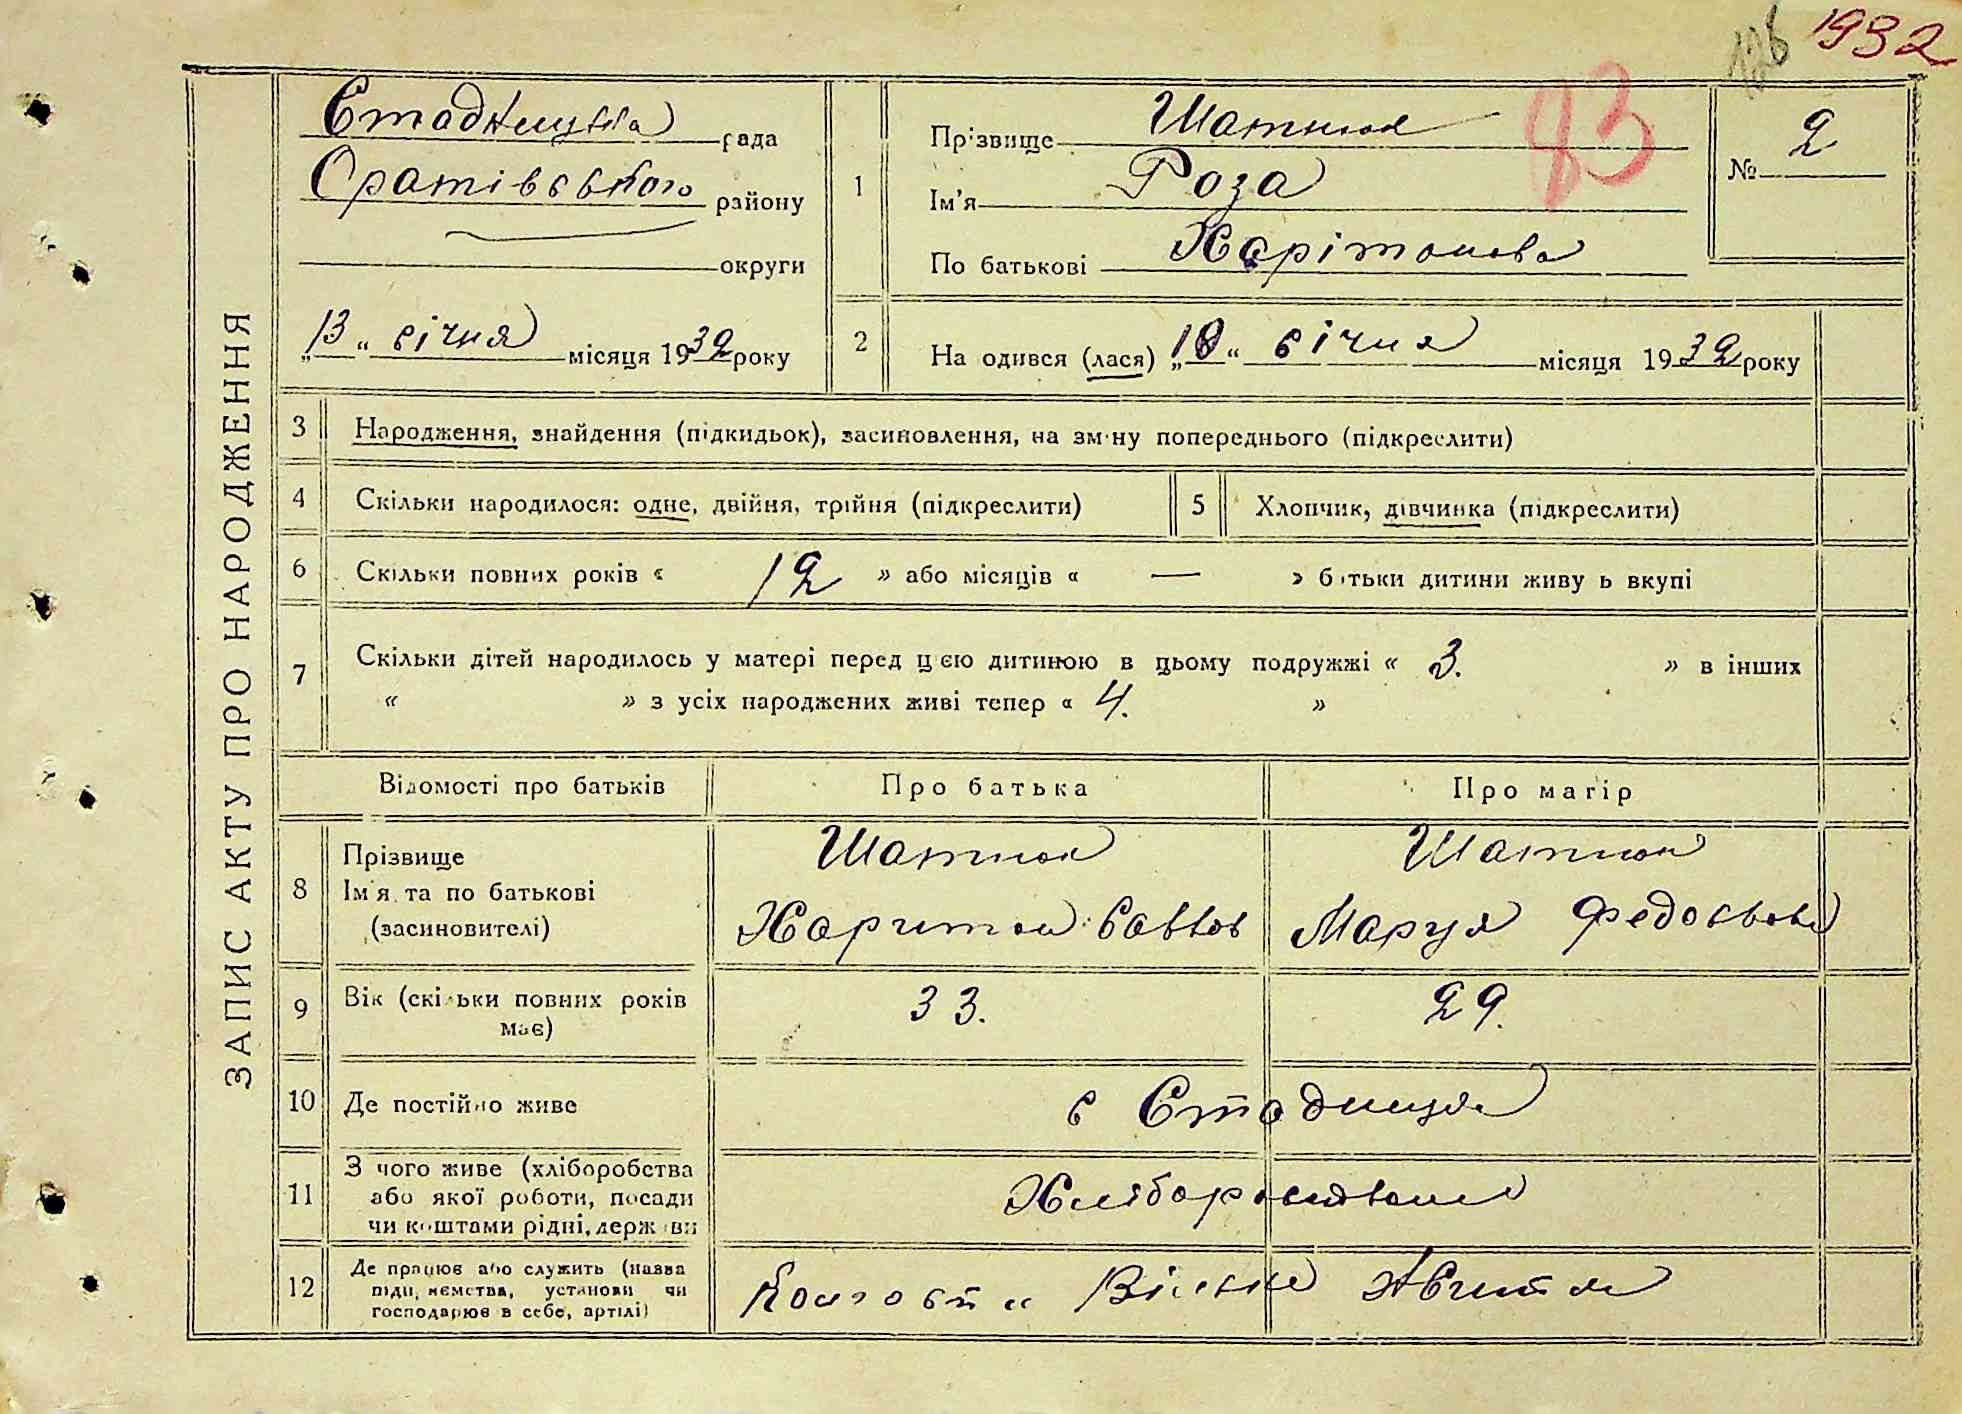 1932
126
83
ЗАПИС АКТУ ПРО НАРОДЖЕННЯ
Стадницька рада
Оратівського району
округи
„13“ січня місяця 1932 року
1
Прізвище Шатнюк
Ім'я Роза
По батькові Харітонова
№ 2
2
На одився (лася) „10“ січня місяця 1932 року
3 Народження, знайдення (підкидьок), засиновлення, на зміну попереднього (підкреслити)
4 Скільки народилося: одне, двійня, трійня (підкреслити)
5 Хлопчик, дівчинка (підкреслити)
6 Скільки повних років « 12 » або місяців « — » батьки дитини живуть вкупі
7 Скільки дітей народилось у матері перед цією дитиною в цьому подружжі « 3. » в інших
« » з усіх народжених живі тепер « 4. »
Відомості про батьків Про батька Про матір
8 Прізвище
Ім'я та по батькові
(засиновителі)
Шатнюк
Харитон Савков
Шатнюк
Маруя Федосьова
9 Вік (скільки повних років
має)
33. 29.
10 Де постійно живе с Стадниця
11 З чого живе (хліборобства
або якої роботи, посади
чи коштами рідні, держави
12 Де працює або служить (назва
підприємства, установи чи
господарює в себе, артілі)
Колгосп „ Вільне Життя